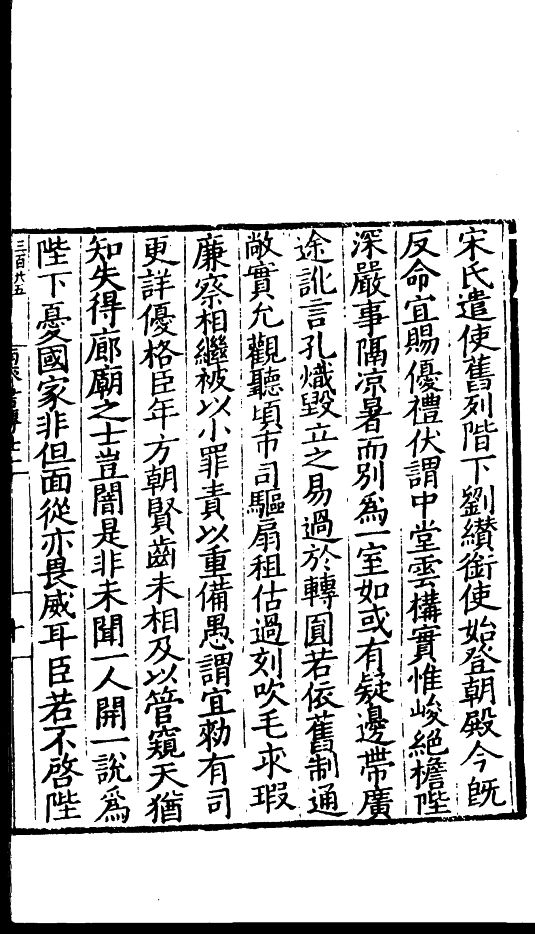 宋氏遣使舊列階下劉纉銜使始登朝殿今既
反命宜賜優禮伏謂中堂雲構實惟峻絕檐陛
深嚴事隔凉暑而別爲一室如或有疑邊帶廣
途訛言孔熾毀立之易過於轉圓若依舊制通
敞實允觀聽頃市司驅扇租估過刻吹毛求瑕
廉察相繼被以小罪責以重備愚謂宜勑有司
更詳優格臣年方朝賢齒未相及以管窺天猶
知失得廊廟之士豈闇是非未聞一人開一說爲
陛下憂國家非但面從亦畏威耳臣若不啓陛
三百六五